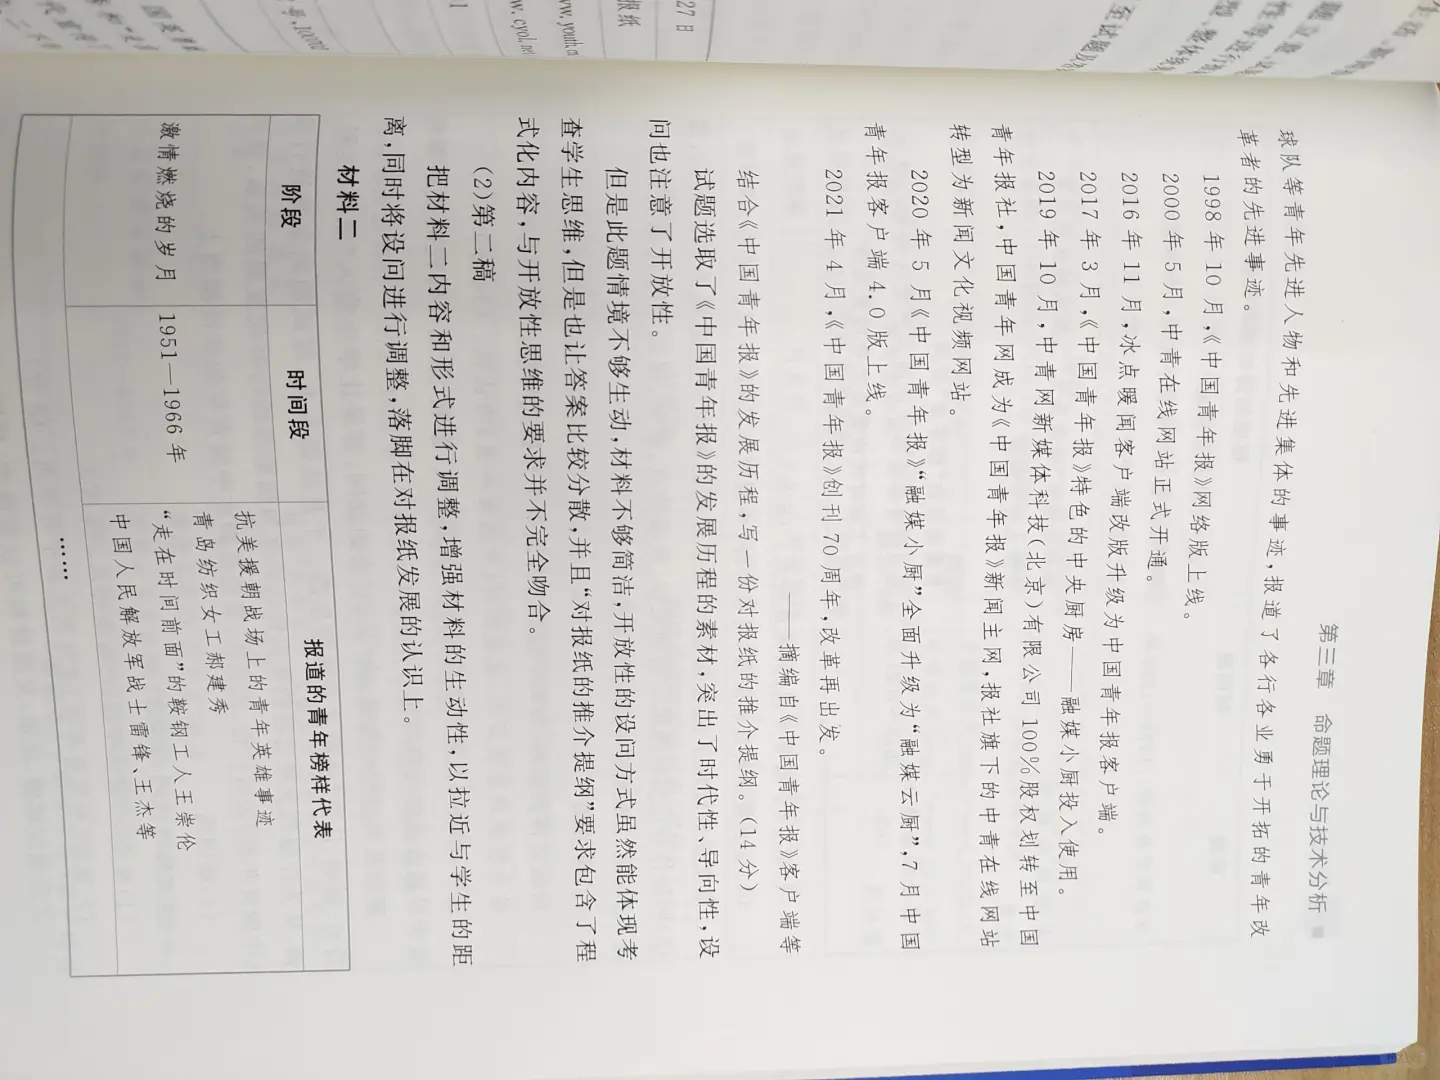 第三章　命题理论与技术分析
球队等青年先进人物和先进集体的事迹，报道了各行各业勇于开拓的青年改
革者的先进事迹。
1998 年 10 月，《中国青年报》网络版上线。
2000 年 5 月，中青在线网站正式开通。
2016 年 11 月，冰点暖闻客户端改版升级为中国青年报客户端。
2017 年 3 月，《中国青年报》特色的中央厨房——融媒小厨投入使用。
2019 年 10 月，中青网新媒体科技（北京）有限公司 100％股权划转至中国
青年报社，中国青年网成为《中国青年报》新闻主网，报社旗下的中青在线网站
转型为新闻文化视频网站。
2020 年 5 月《中国青年报》“融媒小厨”全面升级为“融媒云厨”，7 月中国
青年报客户端 4.0 版上线。
2021 年 4 月，《中国青年报》创刊 70 周年，改革再出发。
——摘编自《中国青年报》客户端等
结合《中国青年报》的发展历程，写一份对报纸的推介提纲。（14 分）
试题选取了《中国青年报》的发展历程的素材，突出了时代性、导向性，设
问也注意了开放性。
但是此题情境不够生动，材料不够简洁，开放性的设问方式虽然能体现考
查学生思维，但是也让答案比较分散，并且“对报纸的推介提纲”要求包含了程
式化内容，与开放性思维的要求并不完全吻合。
（2）第二稿
把材料二内容和形式进行调整，增强材料的生动性，以拉近与学生的距
离，同时将设问进行调整，落脚在对报纸发展的认识上。
材料二
阶段　时间段　报道的青年榜样代表
激情燃烧的岁月　1951—1966 年　抗美援朝战场上的青年英雄事迹
青岛纺织女工郝建秀
“走在时间前面”的鞍钢工人王崇伦
中国人民解放军战士雷锋、王杰等
……
27 日
报纸
www.youth.cn
www.cyol.net